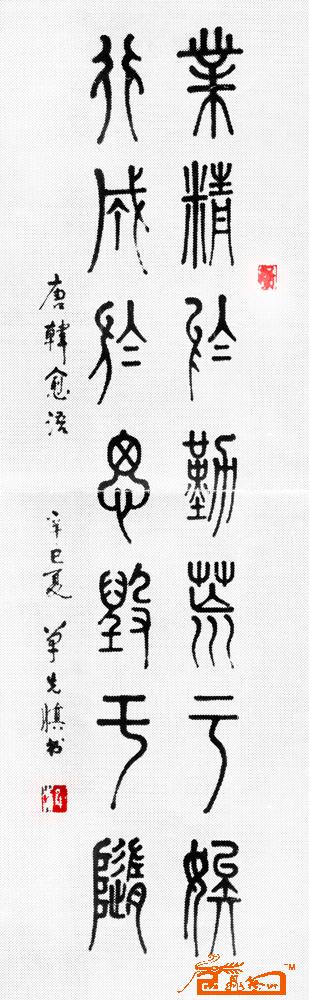 業精於勤荒于嬉
行成於思毀于隨
唐韓愈語
辛巳夏 單先麒書